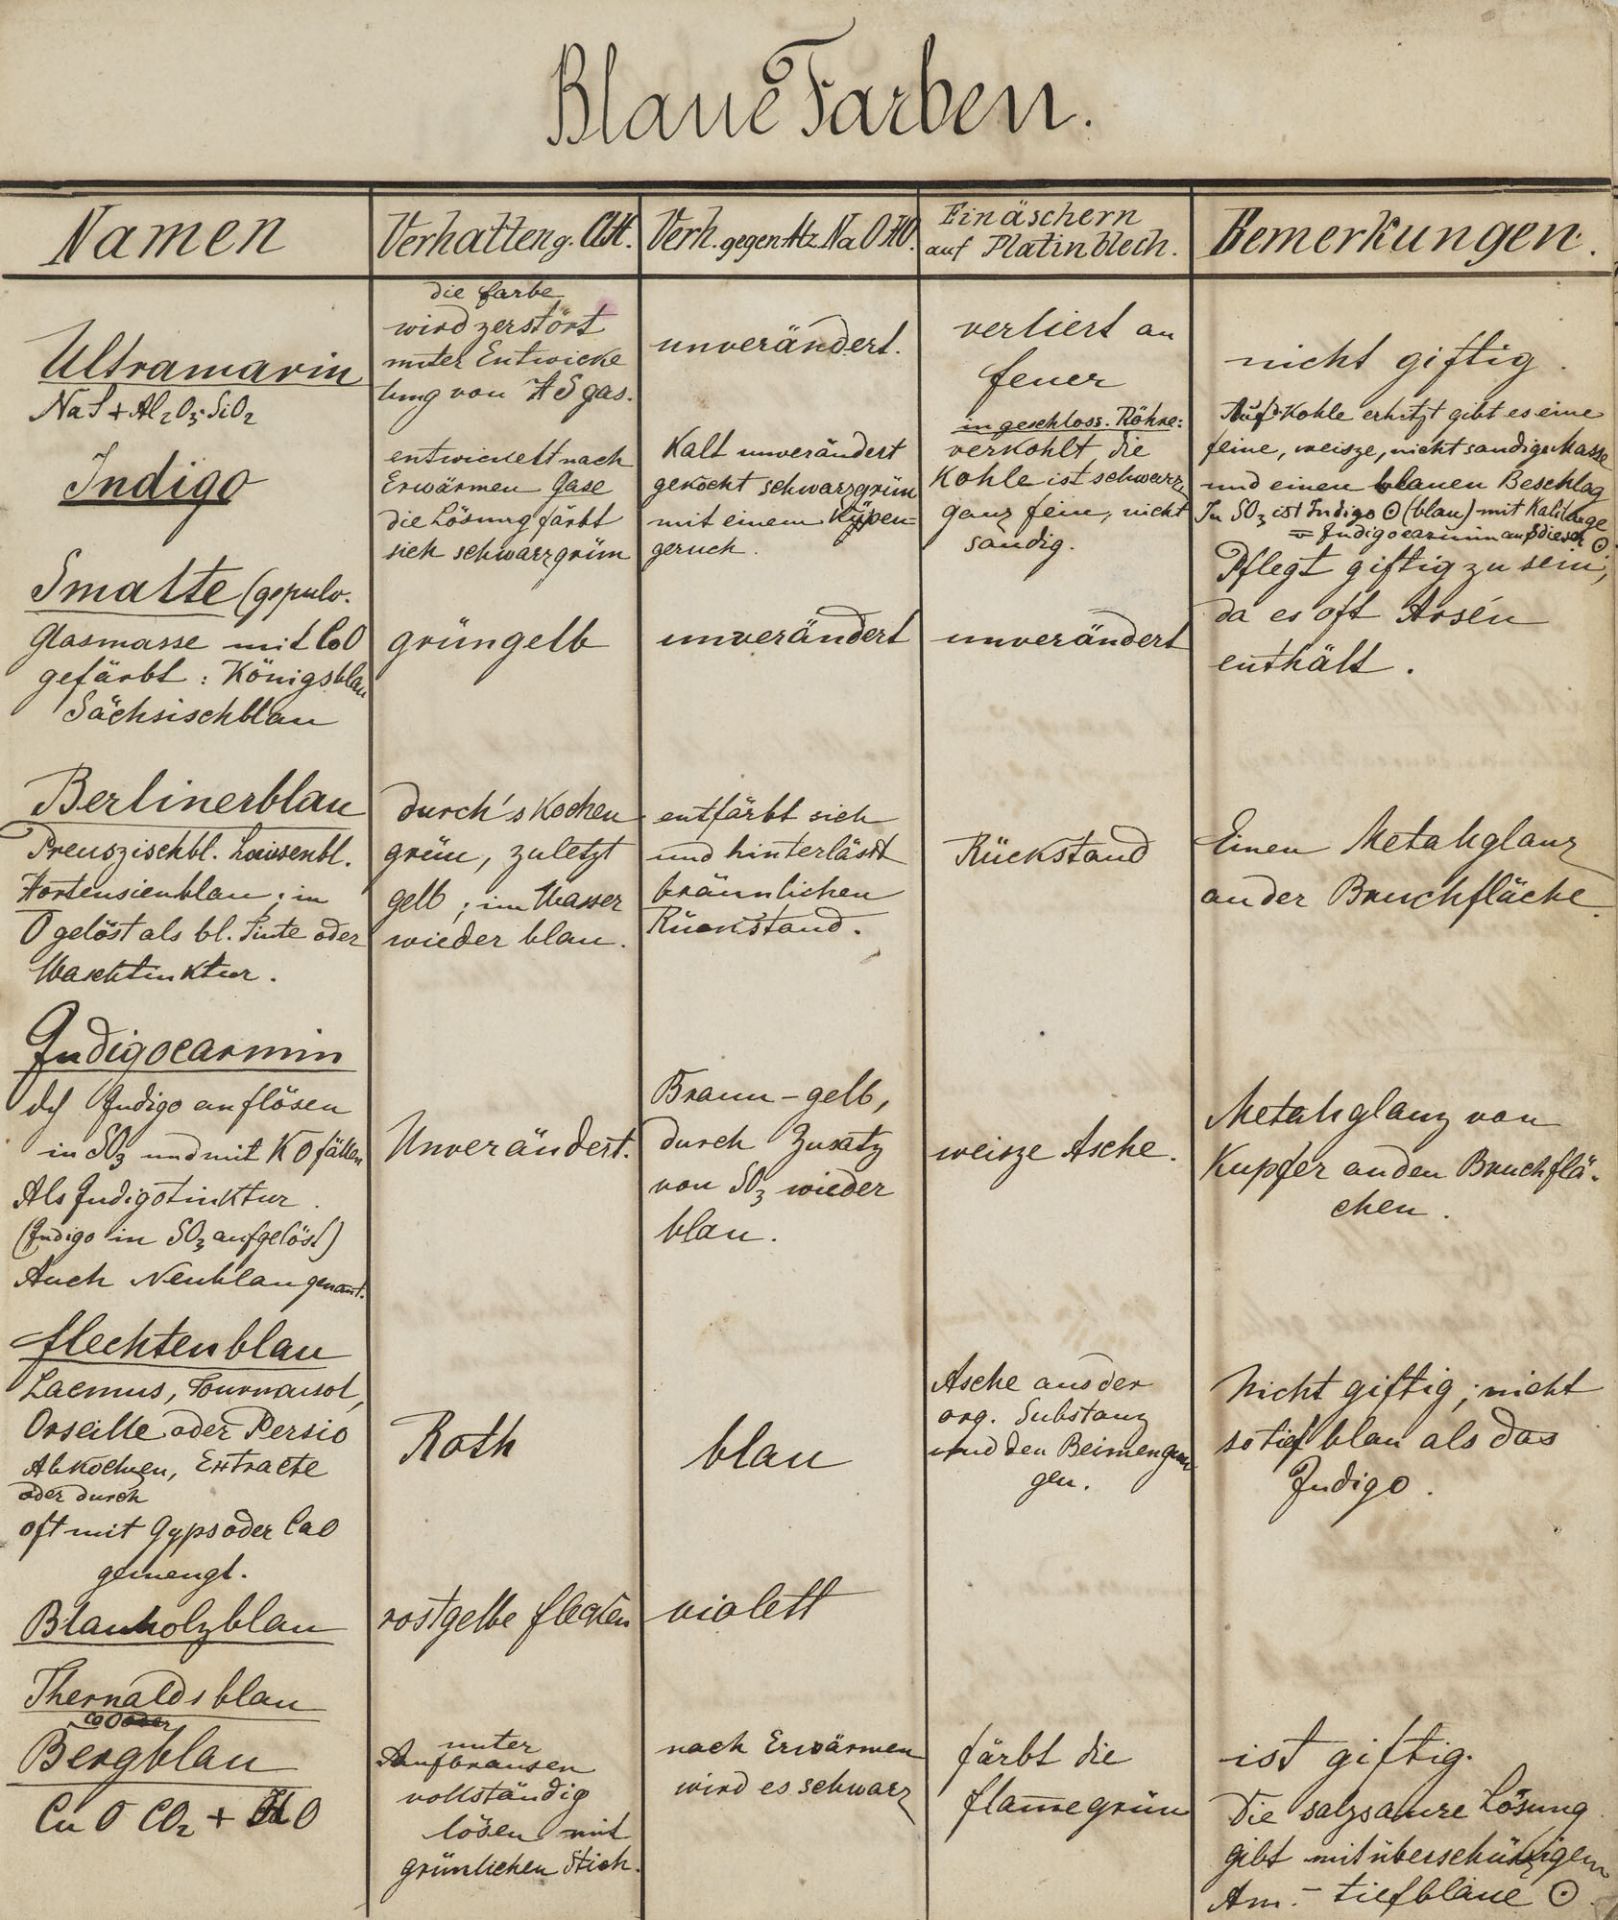 Blaue Farben.
Namen
Verhalten g. ClH.
Verh. gegen Atz NaOHO.
Einäschern
auf Platinblech.
Bemerkungen.
Ultramarin
NaS + Al2O3·SiO2
die farbe
wird zerstört
unter Entwicke
lung von HS gas.
unverändert.
verliert an
feuer
nicht giftig.
Indigo
entwickelt nach
Erwärmen Gase
die Lösung färbt
sich schwarzgrün
Kalt unverändert
gekocht schwarzgrün
mit einem Küpen-
geruch.
in geschloss. Röhre:
verkohlt, die
Kohle ist schwarz
ganz fein, nicht
sandig.
Auf d. Kohle erhitzt gibt es eine
feine, weisze, nicht sandige Masse
und einen blauen Beschlag
In SO3 ist Indigo ⊙ (blau) mit Kalilauge
= Indigocarmin aus dieser ⊙
Smalte (gepulv.
Glasmasse mit CoO
gefärbt: Königsblau
Sächsischblau
grüngelb
unverändert
unverändert
Pflegt giftig zu sein,
da es oft Arsen
enthält.
Berlinerblau
Preuszischbl. Louisenbl.
Hortensienblau; in
O gelöst als bl. Tinte oder
Waschtinktur.
durch's Kochen
grün, zuletzt
gelb; im Wasser
wieder blau.
entfärbt sich
und hinterlässt
bräunlichen
Rückstand.
Rückstand
Einen Metallglanz
an der Bruchfläche.
Indigocarmin
dch Indigo auflösen
in SO3 und mit KO fällen
Als Indigotinktur.
(Indigo in SO3 aufgelöst)
Auch Neublau genannt.
Unverändert.
Braun-gelb,
durch Zusatz
von SO3 wieder
blau.
weisze Asche.
Metallglanz von
Kupfer an den Bruchflä-
chen.
flechtenblau
Lacmus, Tournausol,
Orseille oder Persio
Abkochgen, Extracte
oder durch
oft mit Gyps oder CaO
gemengt.
Roth
blau
Asche aus der
org. Substanz
und den Beimengun
gen.
Nicht giftig; nicht
so tief blau als das
Indigo.
Blauholzblau
rostgelbe flecken
violett
Thernalds blau
CoO oder
Bergblau
CuO CO2 + HO
unter
Aufbrausen
vollständig
lösen mit
grünlichen Stich.
nach Erwärmen
wird es schwarz
färbt die
flamme grün
ist giftig.
Die salzsaure Lösung
gibt mit überschüssigem
Am.- tiefblaue ⊙